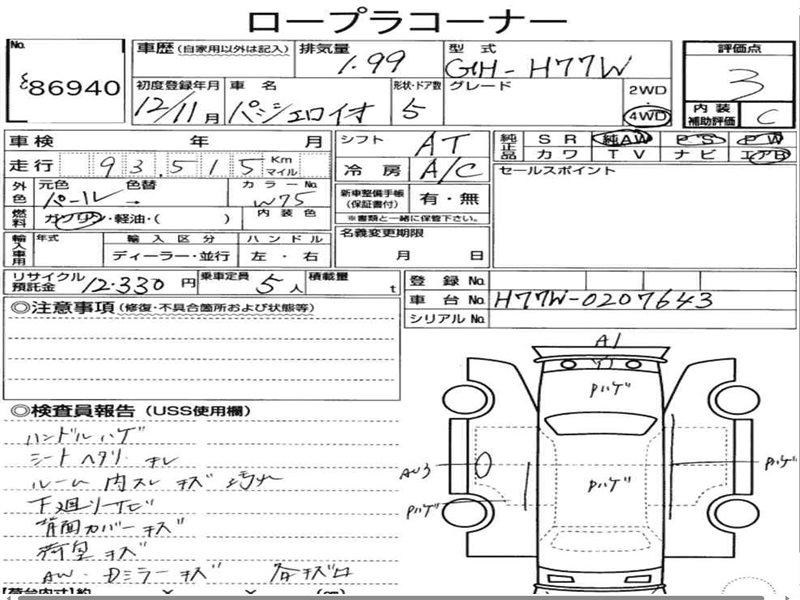 ロープラコーナー
No. 86940
車歴 (自家用以外は記入) 排気量 1.99 型式 GH-H77W
初度登録年月 12/11月 車名 パジェロイオ 形状・ドア数 5 グレード 2WD 4WD
評価点 3
内装補助評価 C
車検 年 月 シフト AT
走行 93,515 Km マイル 冷房 A/C
純正品 SR 純AW PS PW
カワ TV ナビ エアB
外色 元色 パール 色替 カラーNo. W75
燃料 ガソリン・軽油・( ) 内装色
新車整備手帳 (保証書付) 有・無
※書類と一緒に保管下さい。
セールスポイント
輸入車用 年式 輸入区分 ハンドル
ディーラー・並行 左・右
名義変更期限 月 日
リサイクル預託金 12.330円 乗車定員 5人 積載量 t
登録No.
車台No. H77W-0207643
シリアルNo.
◎注意事項 (修復・不具合箇所および状態等)
◎検査員報告 (USS使用欄)
ハンドルハゲ
シートヘタリ キレ
ルーム内スレ キズ 汚れ
下廻りサビ
背面カバーキズ
荷室キズ
AW・Dミラーキズ 各キズロ
A1
Pハゲ
Pハゲ
AU3
Pハゲ
Pハゲ
【荷台内寸】約 × × (cm)